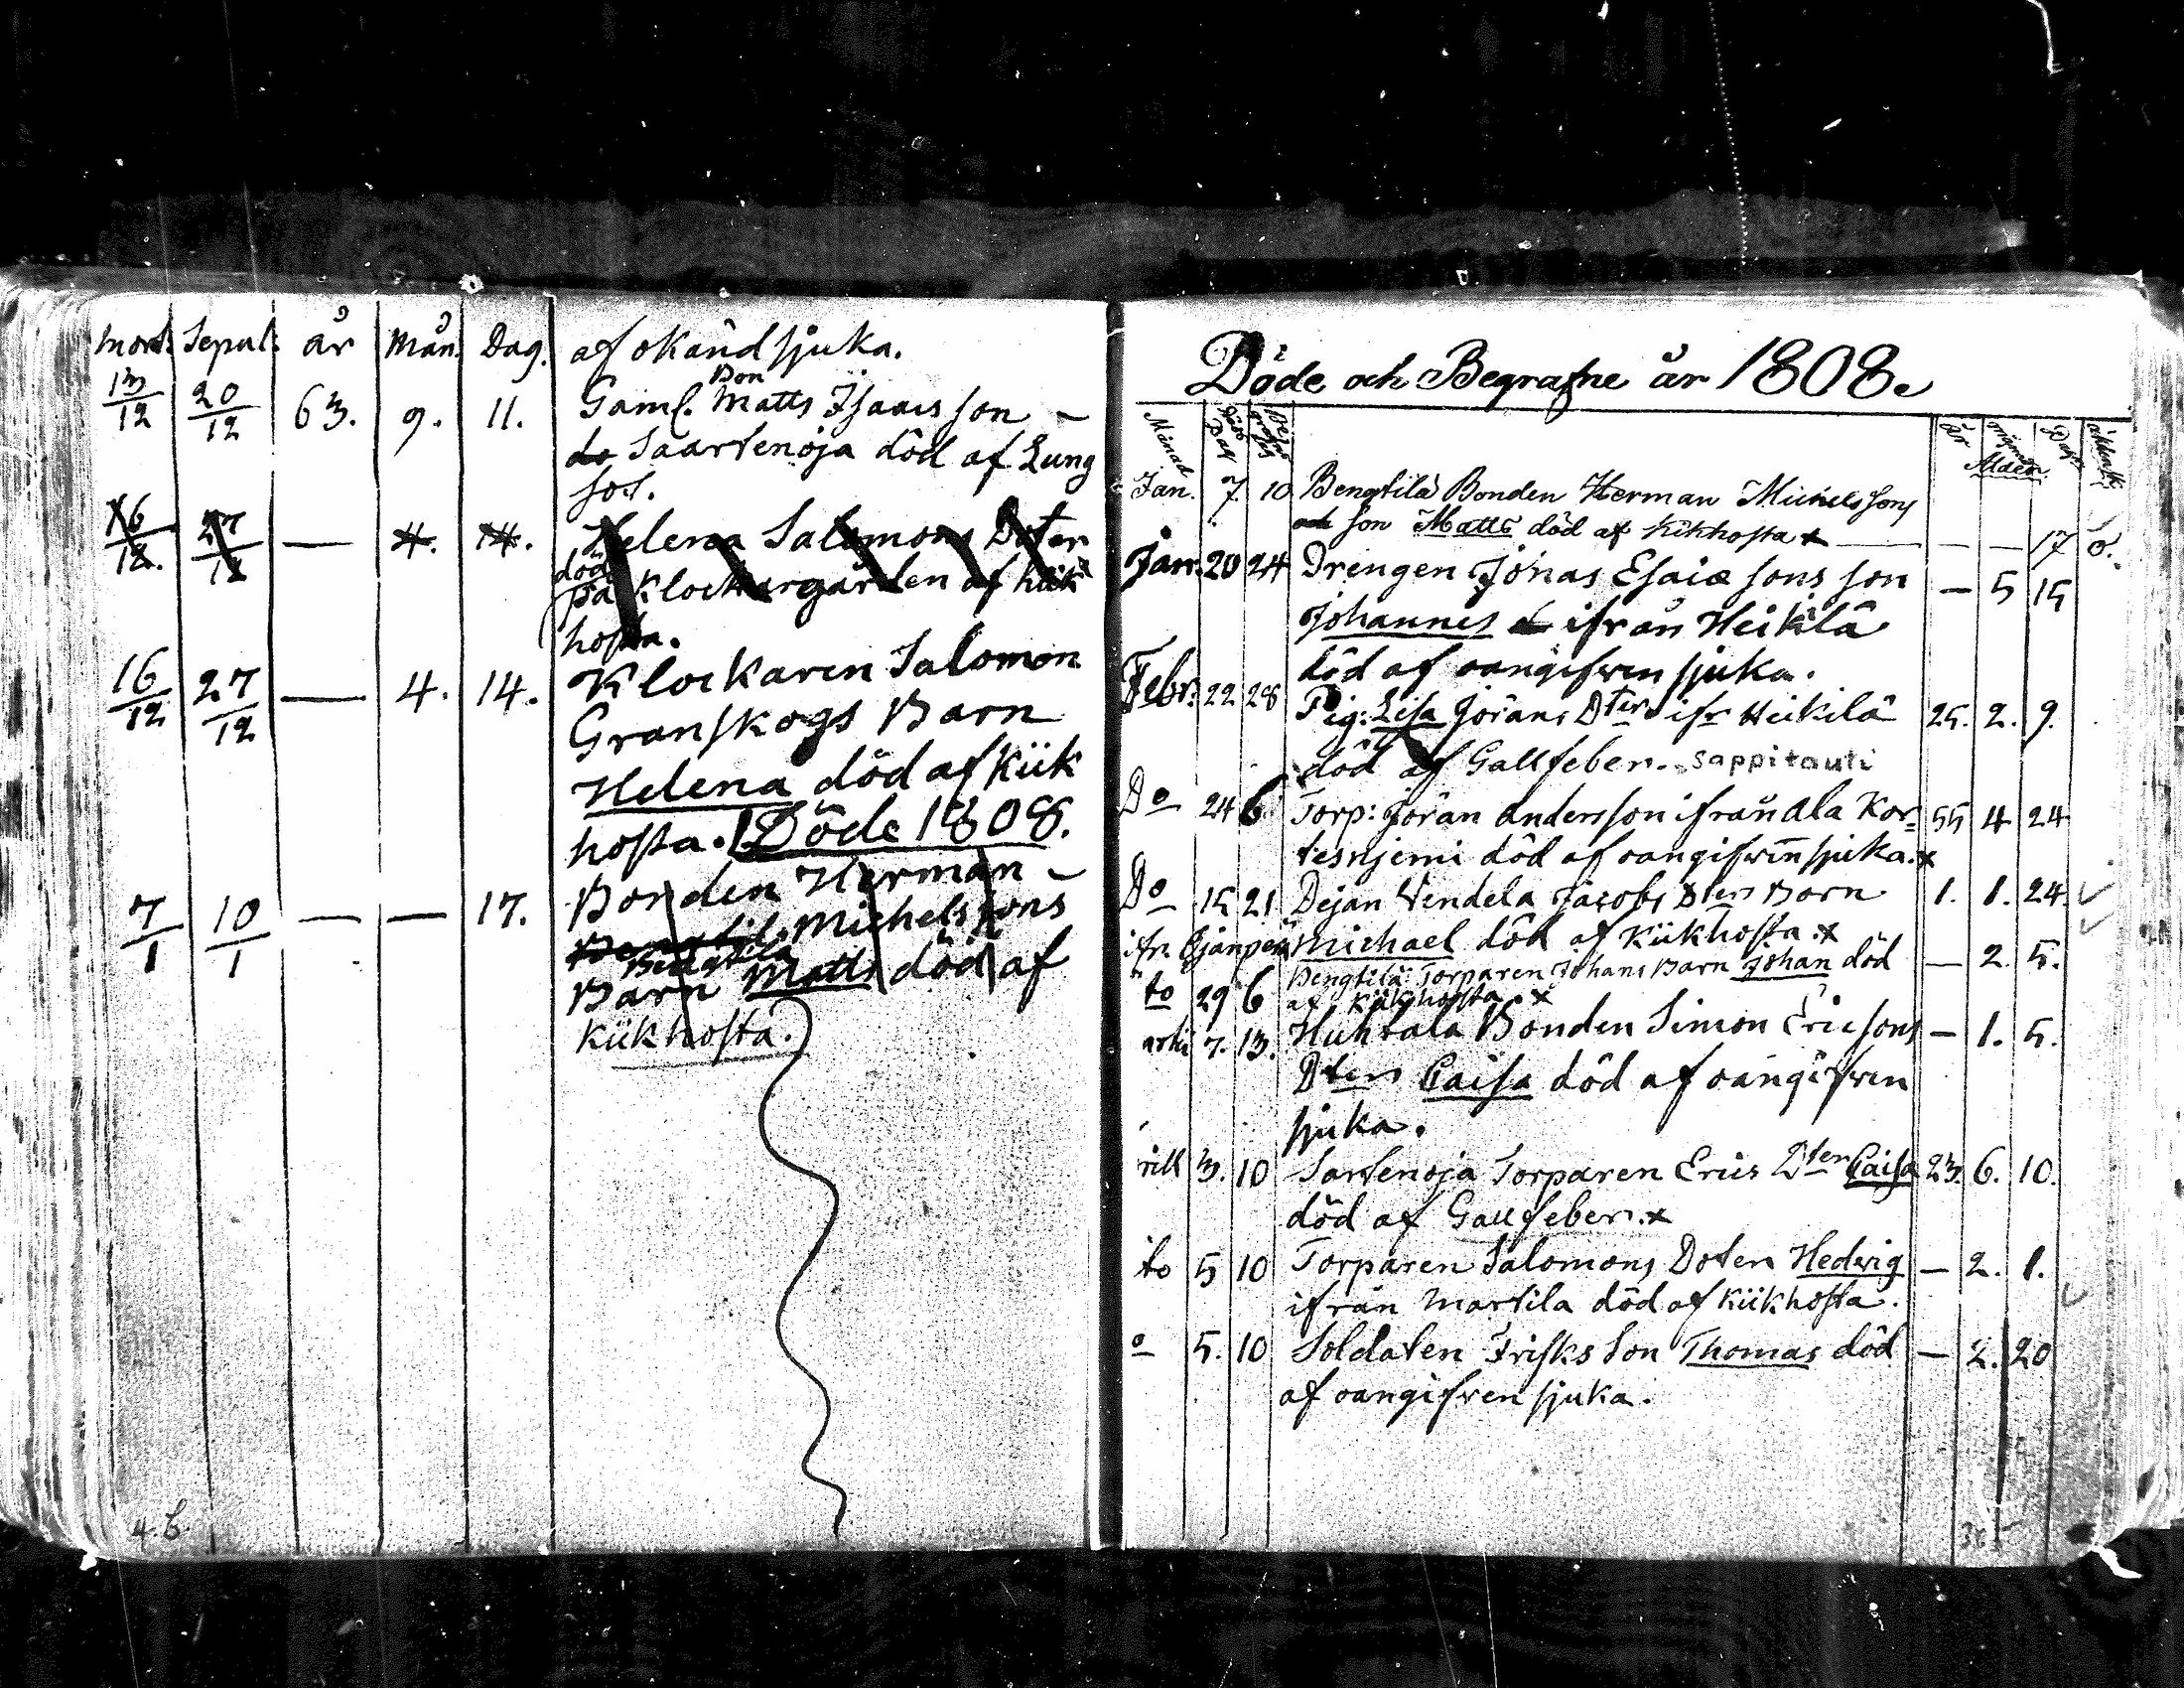 mort. Sepul. år Mån. Dag. af okänd sjuka.
13/12 20/12 63. 9. 11. Gaml. Bon Matts Isaacs son –
do Saartenoja död af Lung
sot.
16/12. 27/12 — 4. 14. Helena Salomons Doter
död på Klockargården af kiik
hosta.
16/12 27/12 — 4. 14. Klockaren Salomon
Granskogs Barn
Helena död af Kiik
hosta. Döde 1808.
7/1 10/1 — — 17. Bonden Herman –
Bengtil. Michelssons
Bengtila
Barn Matts död af
Kiikhosta.
4.6.
Döde och Begrafne år 1808.
Månad Död Dag År Dagar
Ålder.
Jan. 7. 10 Bengtilä Bonden Herman Michelssons
och son Matts död af Kikhosta x — — — 17 ö.
Jan. 20 24 Drengen Jonas Esaiæ sons son — 5 15
Johannes ifrån Heikilä
död af oangifwen sjuka.
Febr. 22 28 Pig: Lisa Jörans Dter ifr Heikilä 25. 2. 9.
död af Gallfeber. sappitauti
Do 24 6. Torp: Jöran Andersson ifrån Ala Kor= 55 4 24
tesnjemi död af oangifwen sjuka. x
Do 15 21 Dejan Vendela Jacobs Dters Barn 1. 1. 24.
ifr. Michael död af Kiikhosta. x
to 29 6 Bengtilä Torparen Johans Barn Johan död — 2. 5.
af Kiikhosta. x
arti 7. 13. Huhtala Bonden Simon Ericsons — 1. 5.
Dter Caisa död af oangifwen
sjuka.
rill 3. 10 Sartenoja Torparen Erics Dter Caisa 23. 6. 10.
död af Gallfeber. x
to 5 10 Torparen Salomons Doter Hedwig — 2. 1.
ifrån Martila död af Kiikhosta.
o 5. 10 Soldaten Frisks Son Thomas död — 2. 20
af oangifwen sjuka.